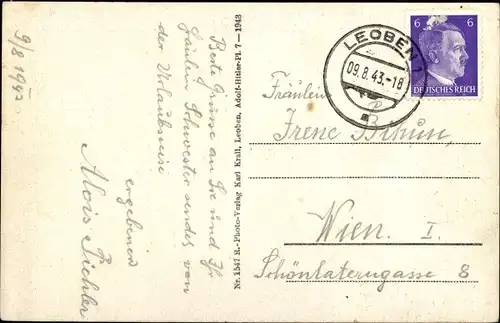 9/8 1943
Beste Grüsse an Sie und Ihr
Fräulein Schwester sendet von
der Urlaubsreise
ergebener
Alois Pichler
Nr. 1547 R.-Photo-Verlag Karl Krall, Leoben, Adolf-Hitler-Pl. 7 — 1943
LEOBEN 1
09.8.43.-18
6 6
DEUTSCHES REICH
Fräulein
Irene
Wien. I.
Schönlaterngasse 8